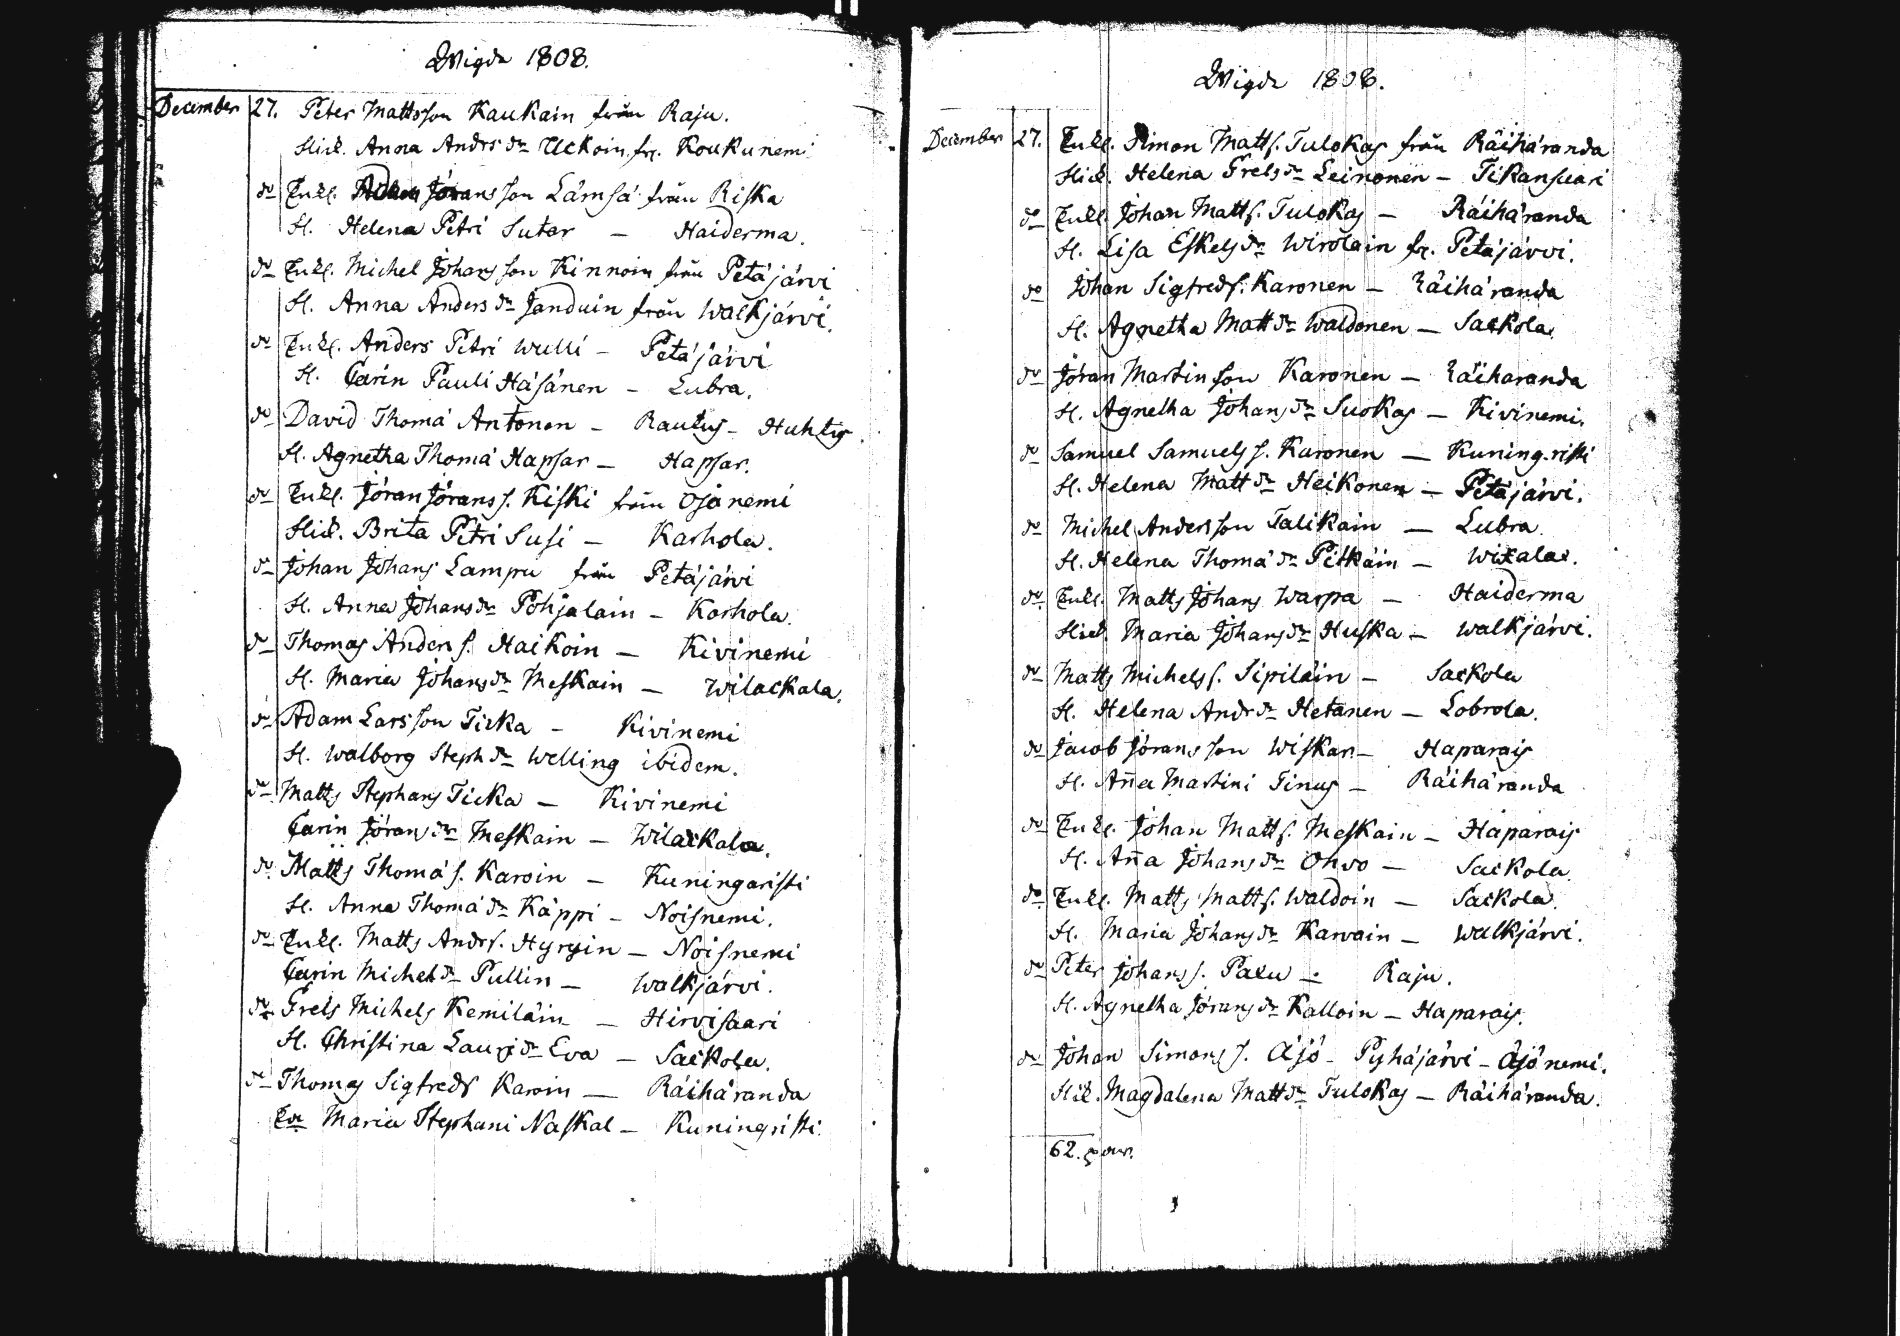 Wigda 1808.
December 27. Peter Mattsson Kaukain från Raju.
Hid. Anna Andrs dr Uckoin fr. Koukunemi
do Enkl. Adam Jöransson Lämsä från Riska
H. Helena Petri Sutar — Haiderma.
do Enkl. Michel Johansson Kinnoin från Petäjärvi
H. Anna Anders dr Janduin från Walkjärvi.
do Enkl. Anders Petri Wulli — Petäjärvi
H. Carin Pauli Häsänen — Lubra.
do David Thomä Antonen — Rautus — Huhtis.
H. Agnetha Thomä Hapsar — Hapsar.
do Enkl. Jöran Jöranss. Kiski från Ojanemi
Hid. Brita Petri Susi — Karhola.
do Johan Johans Lampu från Petäjärvi
H. Anna Johans dr Pohjalain — Korhola.
do Thomas Anders s. Haikoin — Kivinemi
H. Maria Johans dr Meskain — Wilackala.
do Adam Larsson Ticka — Kivinemi
H. Walborg Steph dr Welling ibidem.
do Matts Stephans Ticka — Kivinemi
Carin Jörans dr Meskain — Wilackala.
do Matts Thomä s. Karoin — Kuningaristi
H. Anna Thomä dr Käppi — Noisnemi.
do Enkl. Matts Andrs. Hyryin — Noisnemi
Carin Michels dr Pullin — Walkjärvi.
do Grels Michels Kemiläin — Hirvisaari
H. Christina Lauri dr Eva — Sackola.
do Thomas Sigfreds Karoin — Räihäranda
Maria Stephani Naskal — Kuningristi.
Wigda 1808.
December 27. Enkl. Simon Matts. Tulokas från Räihäranda
Hid. Helena Grels dr Leinonen — Tikansaari
do Enkl. Johan Matts. Tulokas — Räihäranda
H. Lisa Eskels dr Wirolain fr. Petäjärvi.
do Johan Sigfreds. Karonen — Räihäranda
H. Agnetha Matt dr Waldonen — Sackola.
do Jöran Martinson Karonen — Räiharanda
H. Agnetha Johans dr Suokas — Kivinemi.
do Samuel Samuels s. Karonen — Kuning.risti
H. Helena Matt dr Heikonen — Petäjärvi.
do Michel Andersson Talikain — Lubra.
H. Helena Thomä dr Pitkäin — Wikala.
do Enkl. Matts Johans Warpa — Haiderma
Hid. Maria Johans dr Huska — Walkjärvi.
do Matts Michels s. Sipiläin — Sackola
H. Helena Andr dr Hetanen — Lobrola.
do Jacob Jöransson Wiskar — Haparais
H. Ana Martini Tinus — Räihäranda
do Enkl. Johan Matts. Meskain — Haparais
H. Ana Johans dr Ohvo — Sackola.
do Enkl. Matts Matts. Waldoin — Sackola.
H. Maria Johans dr Karvain — Walkjärvi.
do Peter Johans s. Palu — Raju.
H. Agnetha Jörans dr Kalloin — Haparais.
do Johan Simons s. Äjö — Pyhäjärvi — Äjönemi.
Hid. Magdalena Matt dr Tulokas — Räihäranda.
62. par.